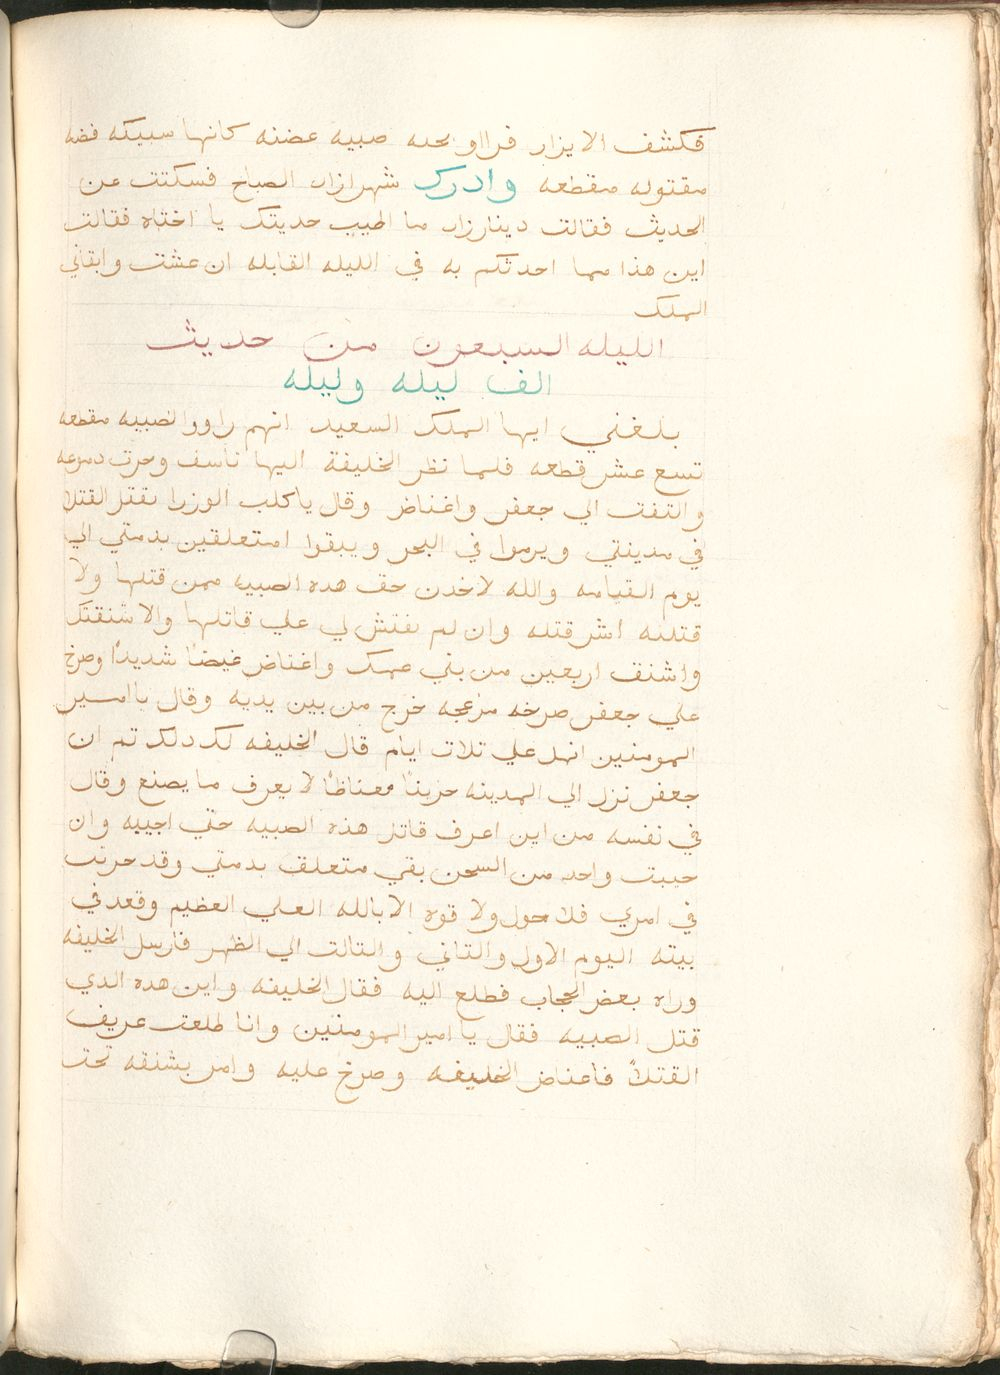 فكشف الايزار فرااو تحته صبيه غضنه كانها سبيكه فضه
مقتوله مقطعه وادرك شهرازاد الصباح فسكتت عن
الحديث فقالت دينارزاد ما اطيب حديتك يا اختاه فقالت
اين هذا مما احدثكم به في الليله القابله ان عشت وابقاني
الملك
الليله السبعون من حديث
الف ليله وليله
بلغني ايها الملك السعيد انهم راووا الصبيه مقطعه
تسع عشر قطعه فلما نظر الخليفة اليها تاسف وجرت دموعه
والتفت الي جعفر واغتاض وقال ياكلب الوزرا تقتل القتلا
في مدينتي ويرموا في البحر ويبقوا متعلقين بذمتي الي
يوم القيامه والله لاخدن حق هده الصبيه ممن قتلها ولا
قتلنه اشر قتله وان لم تفتش لي علي قاتلها والا شنقتك
واشنق اربعين من بني عمك واغتاض غيضًا شديدًا وصرخ
علي جعفر صرخه مزعجه خرج من بين يديه وقال يا امير
المومنين امهل علي تلات ايام قال الخليفه لك دلك تم ان
جعفر نزل الي المدينه حزينًا مغتاظًا لا يعرف ما يصنع وقال
في نفسه من اين اعرف قاتل هذه الصبيه حتي اجيبه وان
جيبت واحد من السجن بقي متعلق بدمتي وقد حرت
في امري فلا حول ولا قوه الا بالله العلي العظيم وقعد في
بيته اليوم الاول والتاني والتالت الي الظهر فارسل الخليفه
وراه بعض الحجاب فطلع اليه فقال الخليفه واين هده الدي
قتل الصبيه فقال يا امير المومنين وانا طلعت عريف
القتلاً فاغتاض الخليفه وصرخ عليه وامر بشنقه تحت